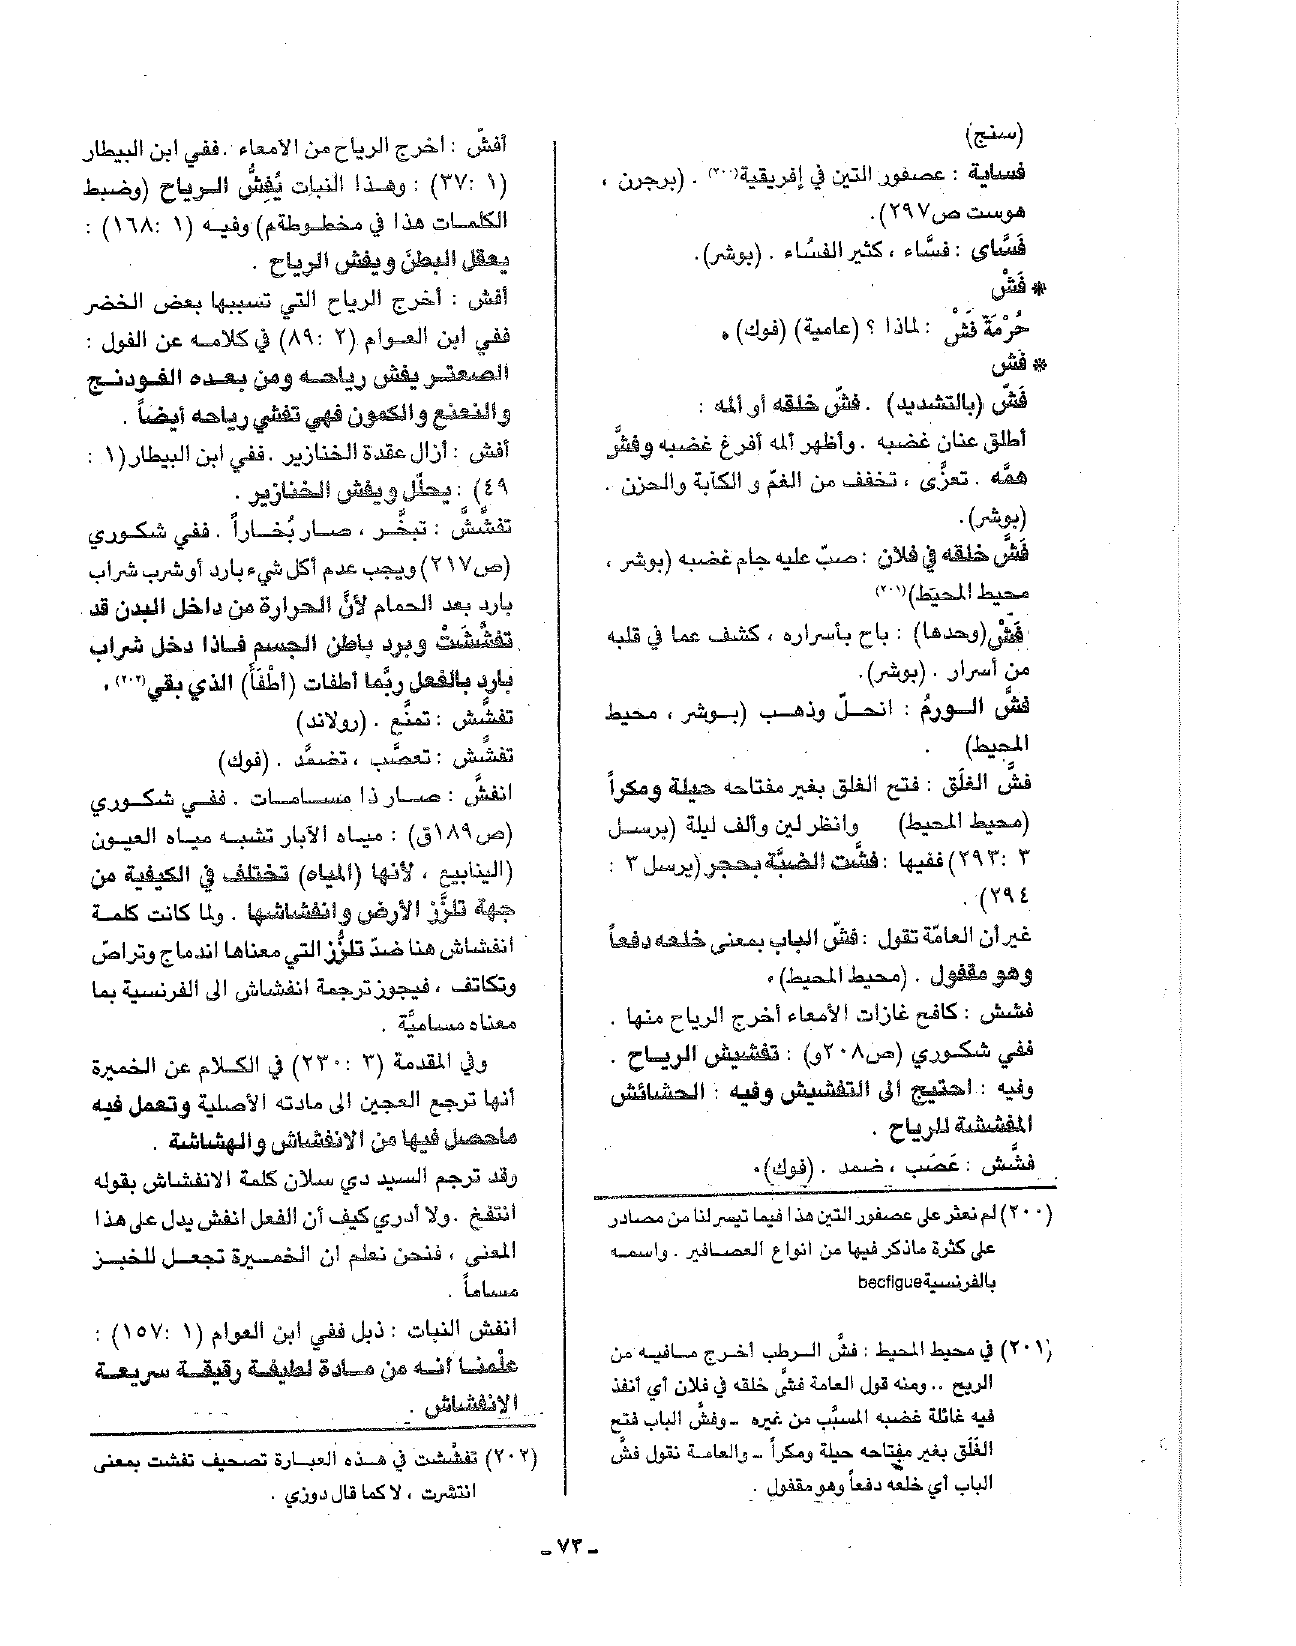 (سنج)
فساية : عصفور التين في إفريقية(٢٠٠) . (برجرن ،
هوست ص٢٩٧).
فَسَّاي : فسَّاء ، كثير الفسُاء . (بوشر).
* فَشْ
حُرْمَة فَشْ : لماذا ؟ (عامية) (فوك) .
* فش
فَشّ (بالتشديد) . فشّ خلقه أو ألمه :
أطلق عنان غضبه . وأظهر ألمه أفرغ غضبه وفشَّ
همَّه . تعزَّى ، تخفف من الغمّ و الكآبة والحزن .
(بوشر).
فَشَّ خلقه في فلان : صبّ عليه جام غضبه (بوشر ،
محيط المحيط)(٢٠١)
فَشّ(وحدها) : باح بأسراره ، كشف عما في قلبه
من أسرار . (بوشر).
فشَّ الورمُ : انحلّ وذهب (بوشر ، محيط
المحيط) .
فشَّ الغلَق : فتح الغلق بغير مفتاحه حيلة ومكراً
(محيط المحيط) وانظر لين وألف ليلة (برسل
٣ :٢٩٣) ففيها : فشَّت الضبَّة بحجر (برسل ٣ :
٢٩٤) .
غير أن العامّة تقول : فشّ الباب بمعنى خلعه دفعاً
وهو مقفول . (محيط المحيط) .
فشش : كافح غازات الأمعاء أخرج الرياح منها .
ففي شكوري (ص٢٠٨و) : تفشيش الرياح .
وفيه : احتيج الى التفشيش وفيه : الحشائش
المفششة للرياح .
فشَّش : عَصَب ، ضمد . (فوك).
(٢٠٠) لم نعثر على عصفور التين هذا فيما تيسر لنا من مصادر
على كثرة ماذكر فيها من انواع العصافير . واسمه
بالفرنسية becfigue
(٢٠١) في محيط المحيط : فشَّ الرطب أخرج مافيه من
الريح .. ومنه قول العامة فشّ خلقه في فلان أي أنفذ
فيه غائلة غضبه المسبَّب من غيره ـ وفشَّ الباب فتح
الغَلَق بغير مفتاحه حيلة ومكراً ـ والعامة نقول فشّ
الباب أي خلعه دفعاً وهو مقفول .
أفشّ : اخرج الرياح من الأمعاء . ففي ابن البيطار
(١ :٣٧) : وهذا النبات يُفِشُّ الرياح (وضبط
الكلمات هذا في مخطوطةم) وفيه (١ :١٦٨) :
يعقل البطن ويفش الرياح .
أفش : أخرج الرياح التي تسببها بعض الخضر
ففي ابن العوام (٢ :٨٩) في كلامه عن الفول :
الصعتر يفش رياحه ومن بعده الفودنج
والنعنع والكمون فهي تفشي رياحه أيضاً .
أفش : أزال عقدة الخنازير . ففي ابن البيطار(١ :
٤٩) : يحلّل ويفش الخنازير .
تفشَّش : تبخَّر ، صار بُخاراً . ففي شكوري
(ص٢١٧) ويجب عدم أكل شيء بارد أو شرب شراب
بارد بعد الحمام لأنَّ الحرارة من داخل البدن قد
تفشَّشَتْ وبرد باطن الجسم فاذا دخل شراب
بارد بالفعل ربَّما أطفات (أطْفَأَ) الذي بقي(٢٠٢) .
تفشَّش : تمنَّع . (رولاند)
تفشَّش : تعصَّب ، تضمَّد . (فوك)
انفشَّ : صار ذا مسامات . ففي شكوري
(ص١٨٩ق) : مياه الآبار تشبه مياه العيون
(الينابيع ، لأنها (المياه) تختلف في الكيفية من
جهة تلزُّز الأرض وانفشاشها . ولما كانت كلمة
انفشاش هنا ضدّ تلزُّز التي معناها اندماج وتراصّ
وتكاتف ، فيجوز ترجمة انفشاش الى الفرنسية بما
معناه مساميَّة .
وفي المقدمة (٣ :٢٣٠) في الكلام عن الخميرة
أنها ترجع العجين الى مادته الأصلية وتعمل فيه
ماحصل فيها من الانفشاش والهشاشة .
وقد ترجم السيد دي سلان كلمة الانفشاش بقوله
انتفخ . ولا أدري كيف أن الفعل انفش يدل على هذا
المعنى ، فنحن نعلم ان الخميرة تجعل للخبز
مساماً .
انفش النبات : ذبل ففي ابن العوام (١ :١٥٧) :
علْمنا أنه من مادة لطيفة رقيقة سريعة
الانفشاش .
(٢٠٢) تفشَّشت في هذه العبارة تصحيف تفشت بمعنى
انتشرت ، لا كما قال دوزي .
ـ ٧٣ ـ